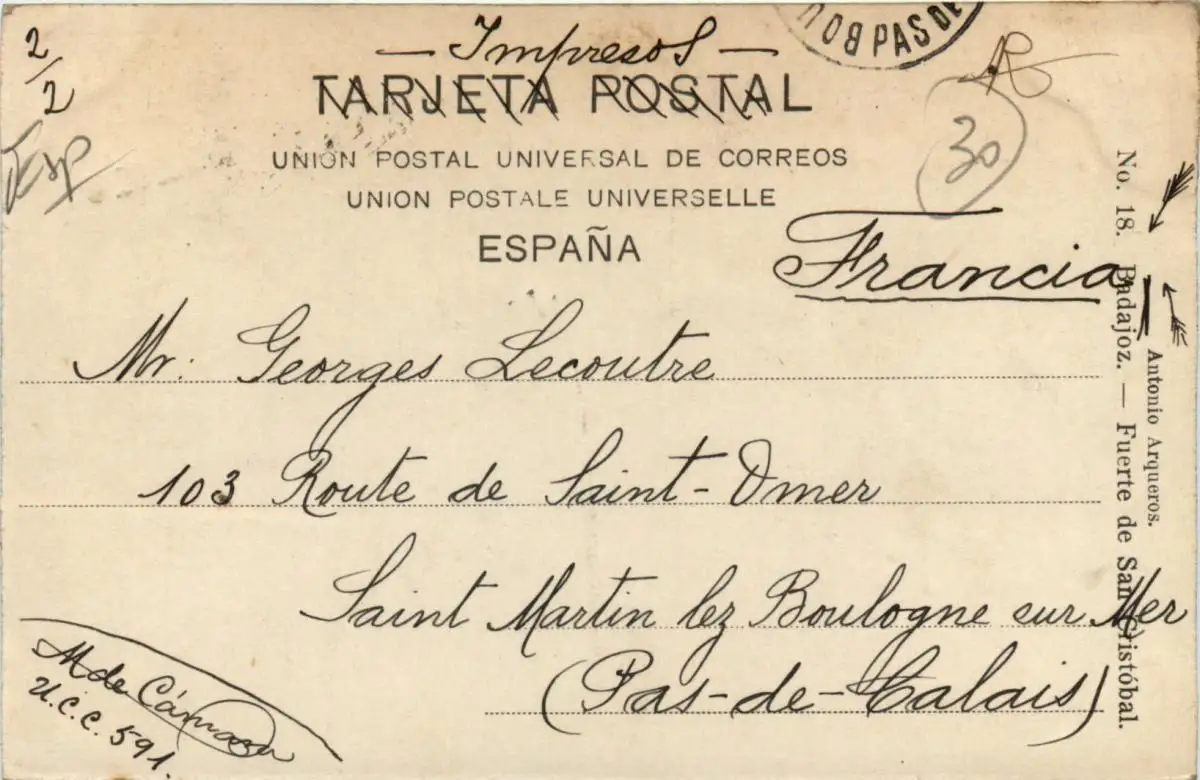 2/2
— Impresos —
TARJETA POSTAL
BOU
PAS DE
Esp
30
UNIÓN POSTAL UNIVERSAL DE CORREOS
UNION POSTALE UNIVERSELLE
ESPAÑA
Francia
Mr. Georges Lecoutre
103 Route de Saint-Omer
Saint Martin lez Boulogne sur Mer
(Pas-de-Calais)
M de Cámara
U.C.C. 591.
No. 18. Badajoz. — Fuerte de San Cristóbal.
Antonio Arqueros.